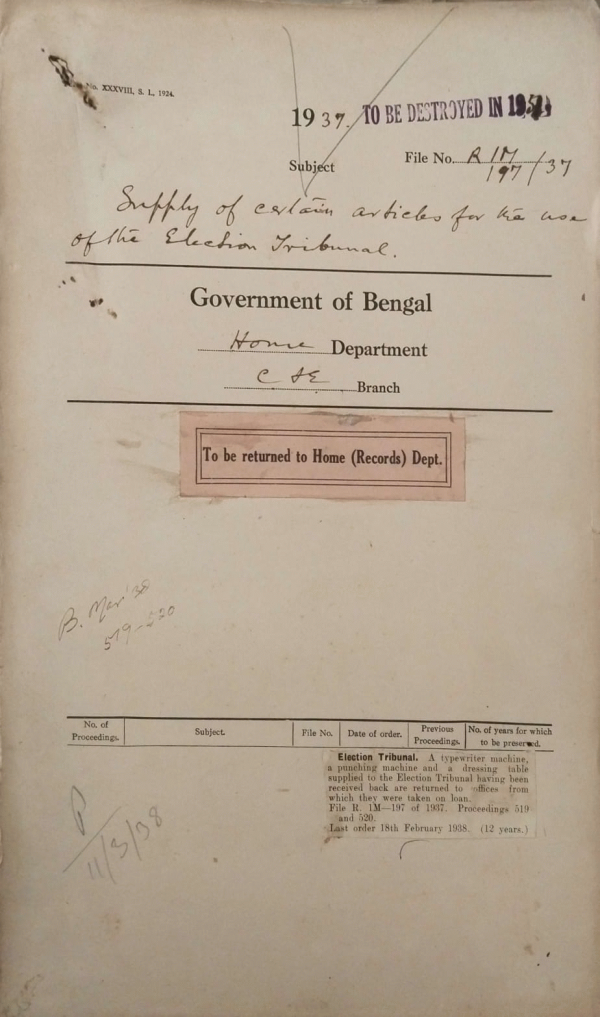 No. XXXVIII, S. L., 1924.
1937. TO BE DESTROYED IN
Subject
File No. R 1M
197/37
Supply of certain articles for the use
of the Election Tribunal.
Government of Bengal
Home Department
Branch
To be returned to Home (Records) Dept.
B. Mar '38
519-520
No. of Proceedings. Subject. File No. Date of order. Previous Proceedings. No. of years for which to be preserved.
Election Tribunal. A typewriter machine,
a punching machine and a dressing table
supplied to the Election Tribunal having been
received back are returned to offices from
which they were taken on loan.
File R. 1M—197 of 1937. Proceedings 519
and 520.
Last order 18th February 1938. (12 years.)
P
11/3/38